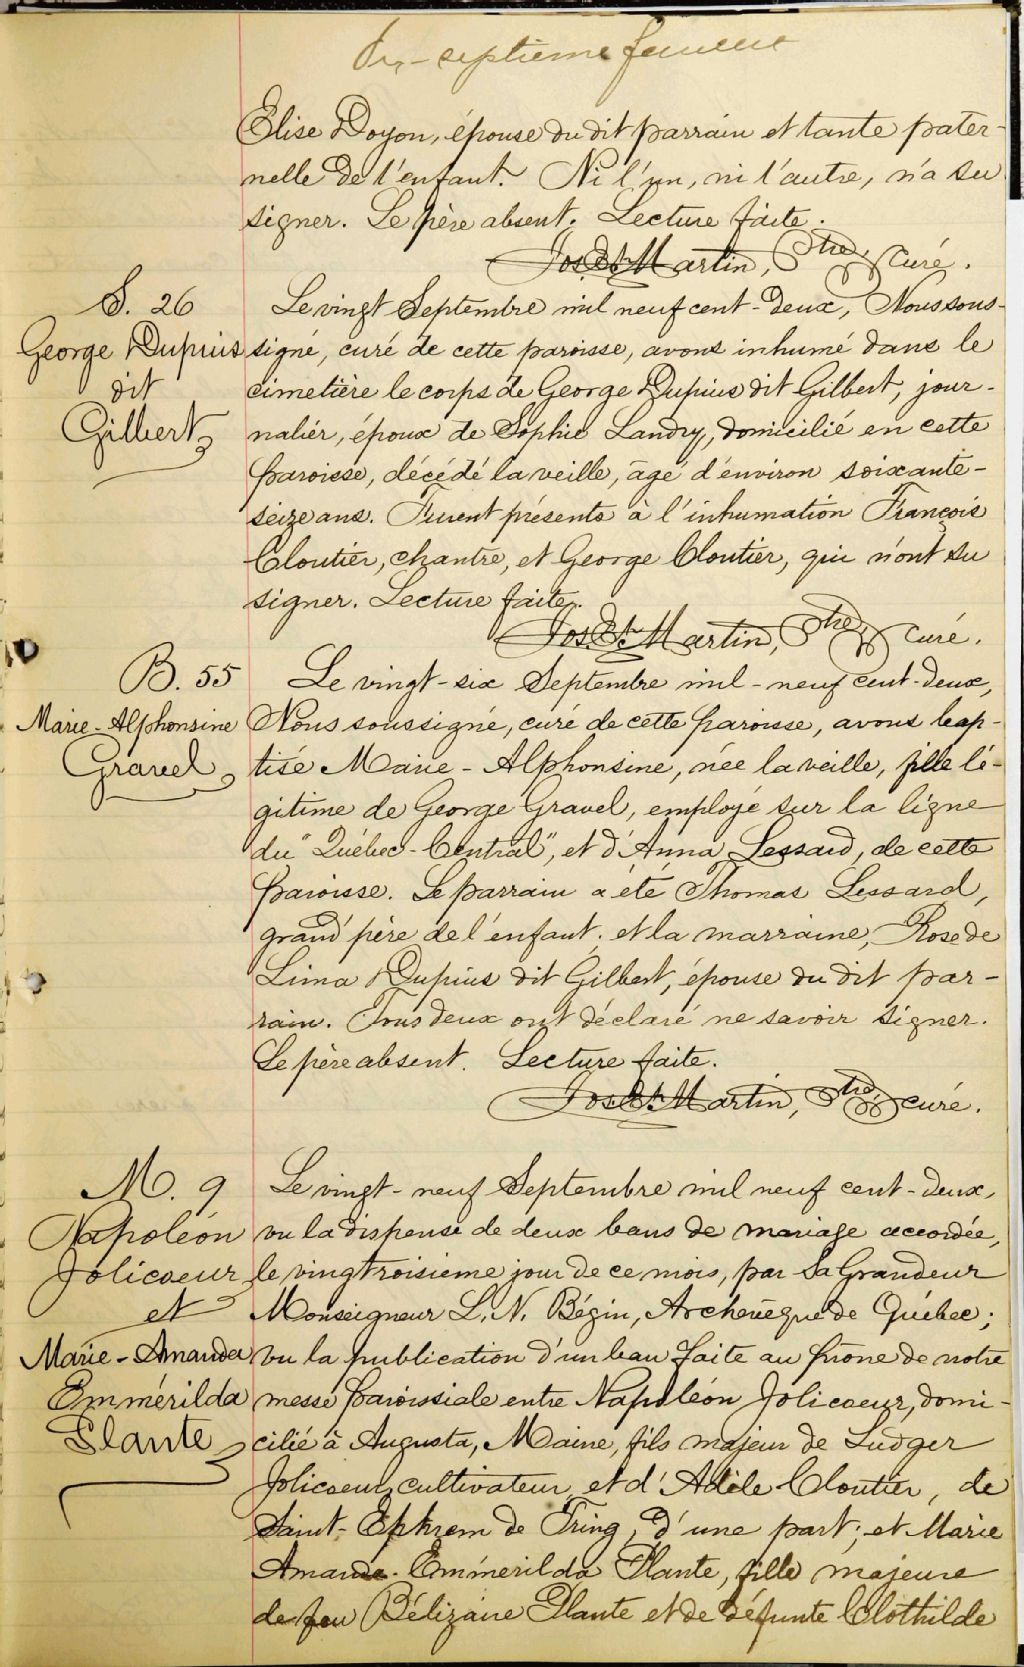 Dix-septième feuillet
Elise Doyon, épouse du dit parrain et tante pater-
nelle de l'enfant. Ni l'un, ni l'autre, n'a su
signer. Le père absent. Lecture faite.
Jos. Et. Martin, Ptre, curé.
S. 26
George Dupuis
dit
Gilbert
Le vingt Septembre mil neuf cent-deux, Nous sous-
signé, curé de cette paroisse, avons inhumé dans le
cimetière le corps de George Dupuis dit Gilbert, jour-
nalier, époux de Sophie Landry, domicilié en cette
paroisse, décédé la veille, âgé d'environ soixante-
seize ans. Furent présents à l'inhumation François
Cloutier, chantre, et George Cloutier, qui n'ont su
signer. Lecture faite.
Jos. Et. Martin, Ptre, curé.
B. 55
Marie-Alphonsine
Gravel
Le vingt-six Septembre mil-neuf cent-deux,
Nous soussigné, curé de cette paroisse, avons bap-
tisé Marie-Alphonsine, née la veille, fille lé-
gitime de George Gravel, employé sur la ligne
du "Québec-Central", et d'Anna Lessard, de cette
paroisse. Le parrain a été Thomas Lessard,
grand'père de l'enfant. et la marraine, Rose de
Lima Dupuis dit Gilbert, épouse du dit par-
rain. Tous deux ont déclaré ne savoir signer.
Le père absent. Lecture faite.
Jos. Et. Martin, Ptre, curé.
M. 9
Napoléon
Jolicoeur
et
Marie-Amanda
Emmérilda
Plante
Le vingt-neuf Septembre mil neuf cent-deux,
vu la dispense de deux bans de mariage accordée,
le vingtroisième jour de ce mois, par Sa Grandeur
Monseigneur L. N. Bégin, Archevêque de Québec;
vu la publication d'un ban faite au prône de notre
messe paroissiale entre Napoléon Jolicoeur, domi-
cilié à Augusta, Maine, fils majeur de Ludger
Jolicoeur, cultivateur, et d'Adèle Cloutier, de
Saint-Ephrem de Tring, d'une part; et Marie
Amanda-Emmérilda Plante, fille majeure
de feu Bélizaire Plante et de défunte Clothilde